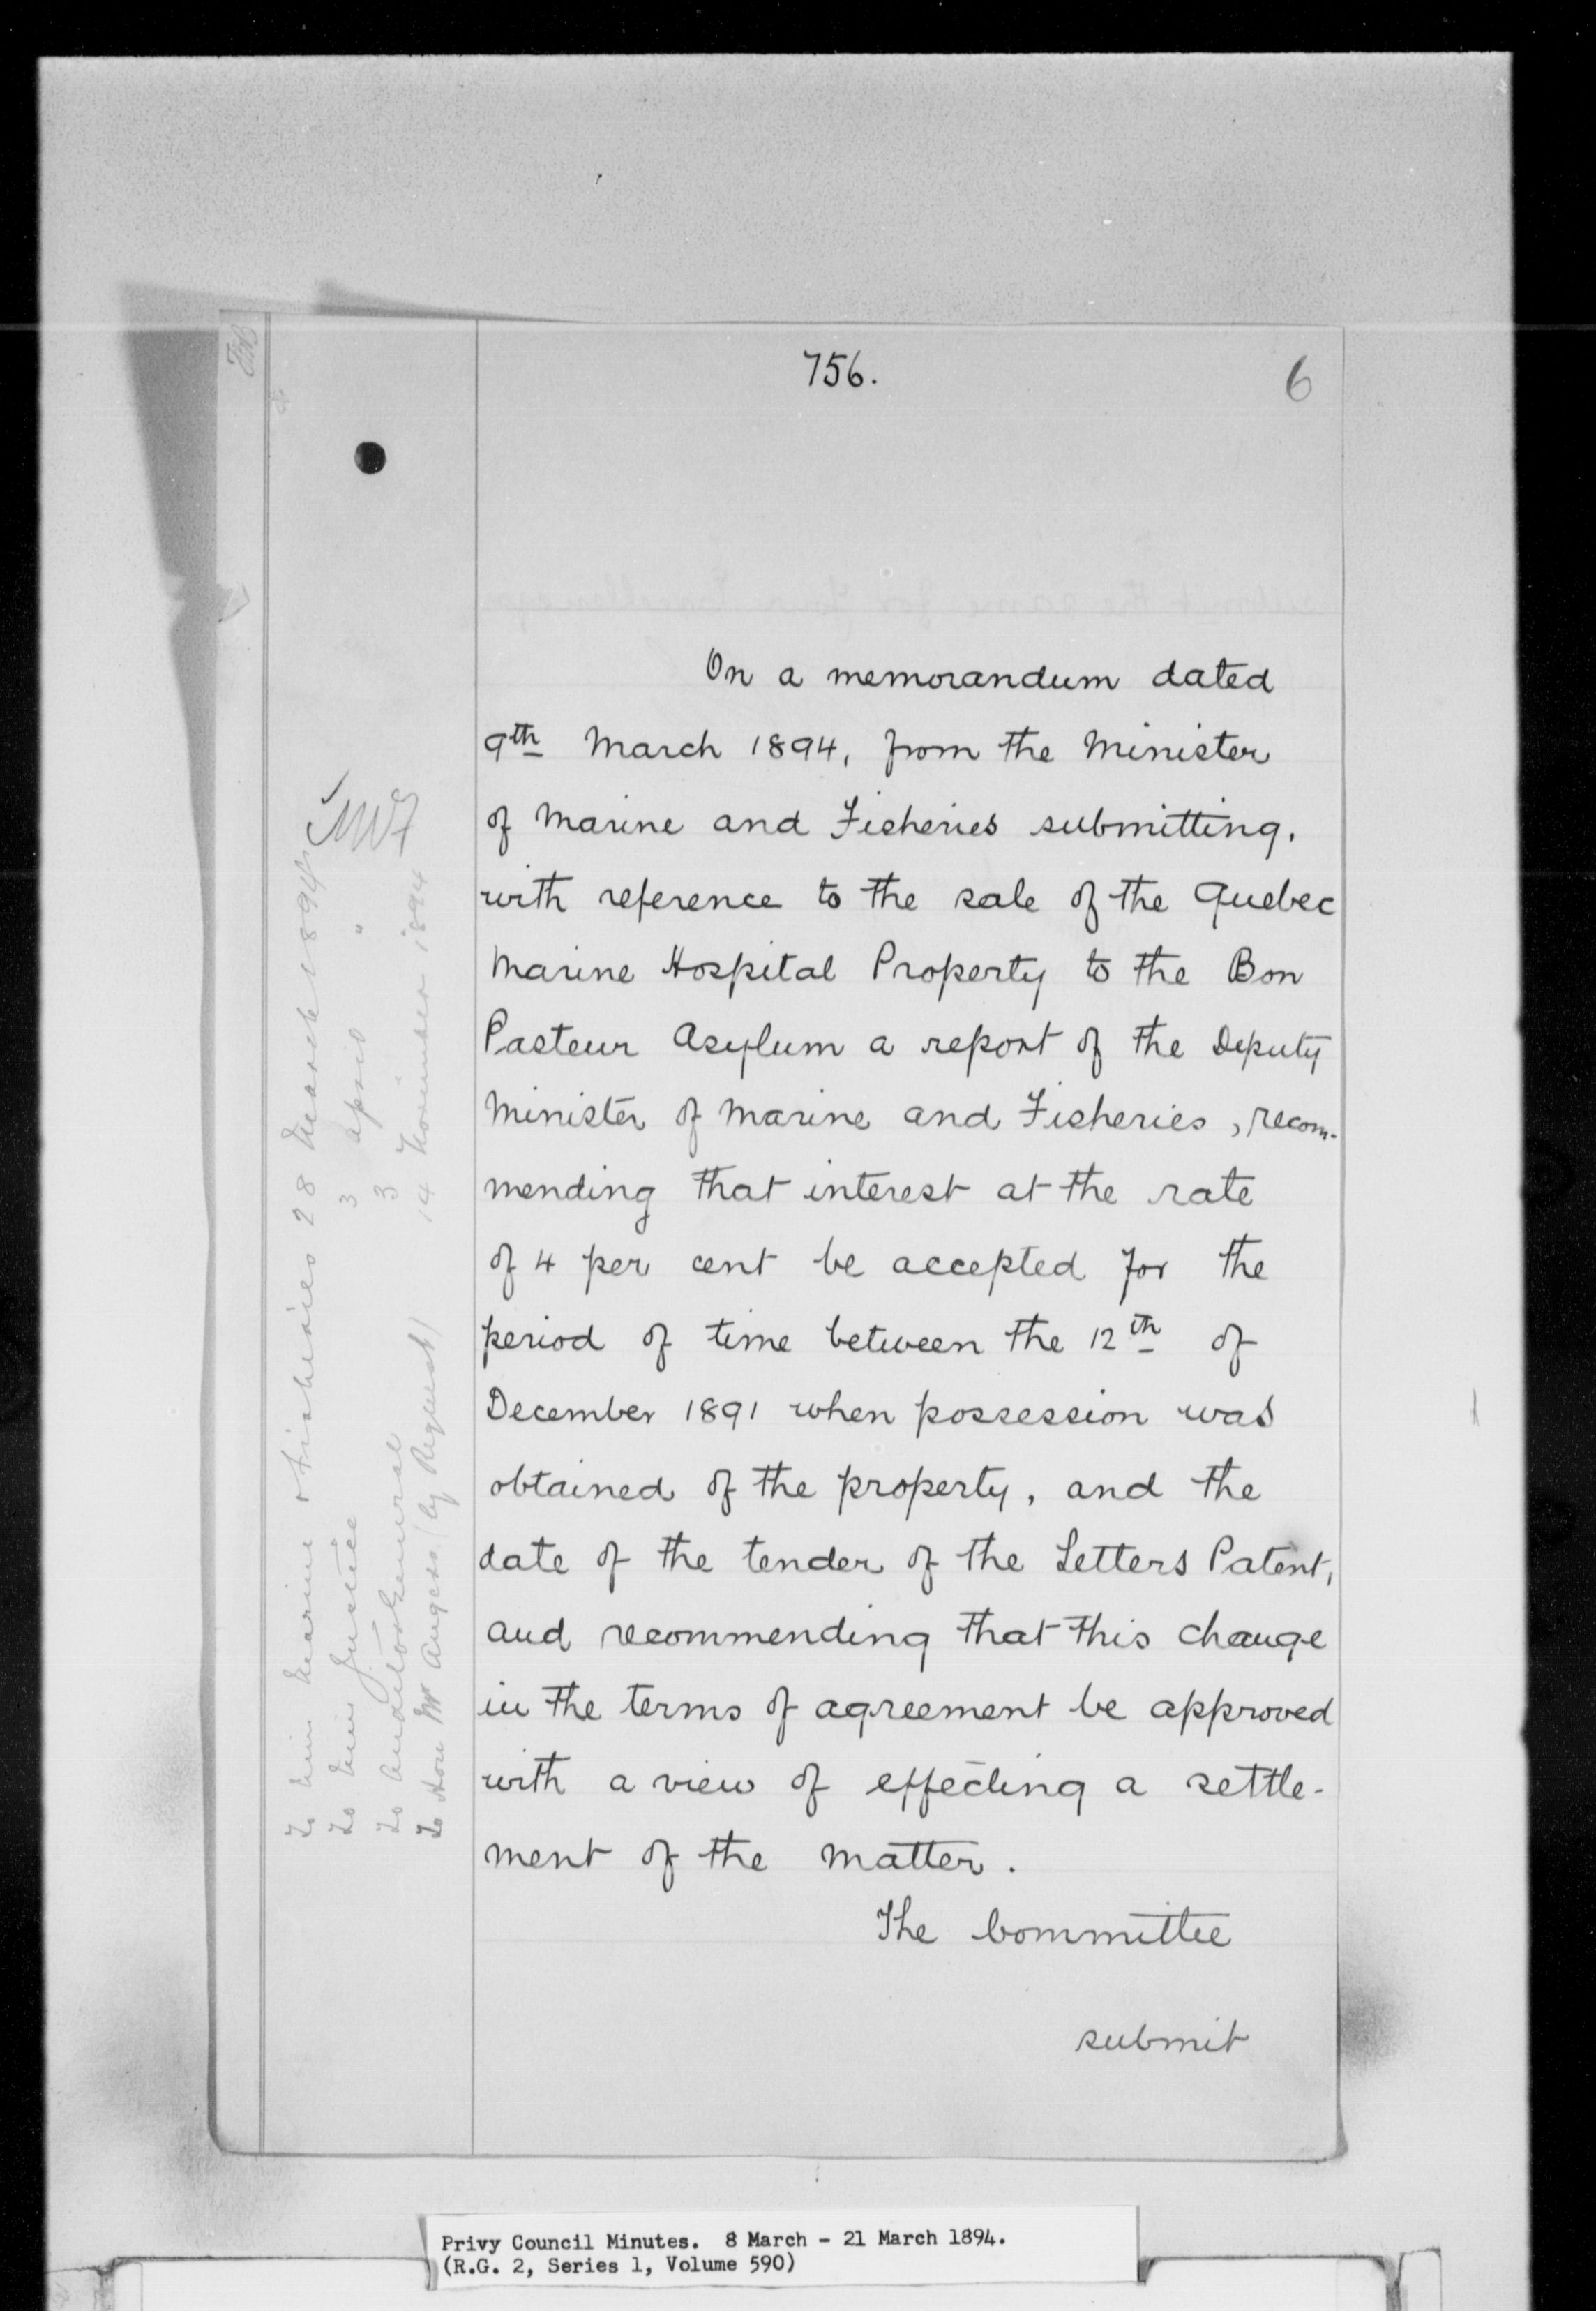 756.
6
On a memorandum dated
9th March 1894, from the Minister
of Marine and Fisheries submitting,
with reference to the sale of the Quebec
Marine Hospital Property to the Bon
Pasteur Asylum a report of the Deputy
Minister of Marine and Fisheries, recom-
mending that interest at the rate
of 4 per cent be accepted for the
period of time between the 12th of
December 1891 when possession was
obtained of the property, and the
date of the tender of the Letters Patent,
and recommending that this change
in the terms of agreement be approved
with a view of effecting a settle-
ment of the matter.
The Committee
submit
To Min Marine & Fisheries 28 March 1894
To Min Justice 3 April "
To Auditor General 3
To Hon Mr Angers (by Request) 14 November 1894
Privy Council Minutes. 8 March - 21 March 1894.
(R.G. 2, Series 1, Volume 590)